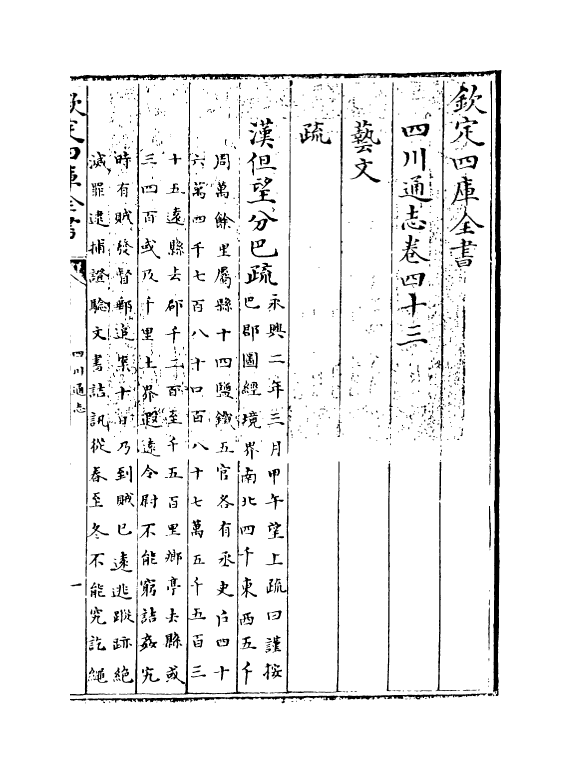 欽定四庫全書
四川通志卷四十三
藝文
疏
漢但望分巴疏永興二年三月甲午望上疏曰謹按
巴郡圖經境界南北四千東西五千
周萬餘里屬縣十四鹽鐵五官各有丞史户四十
六萬四千七百八十口百八十七萬五千五百三
十五遠縣去郡千二百至千五百里鄉亭去縣或
三四百或及千里土界遐遠令尉不能窮詰姦宄
時有賊發督郵追案十日乃到賊已遠逃蹤跡絶
滅罪逮捕證驗文書詰訊從春至冬不能究訖繩
欽定四庫全書
四川通志
一